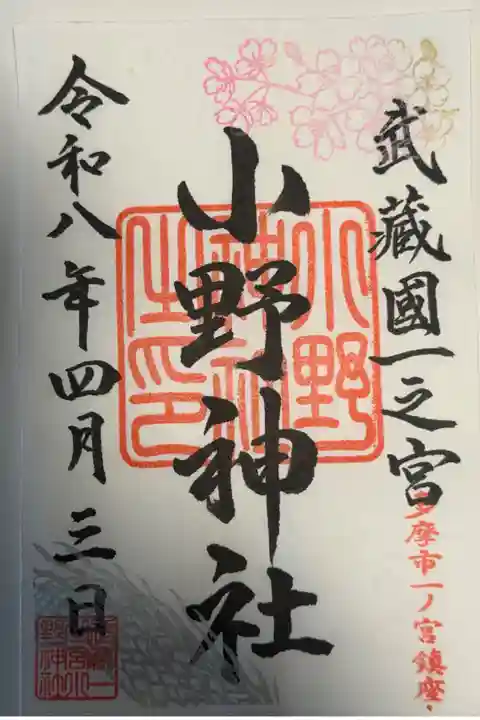 武蔵國一之宮
多摩市一ノ宮鎮座
小野神社
令和八年四月三日